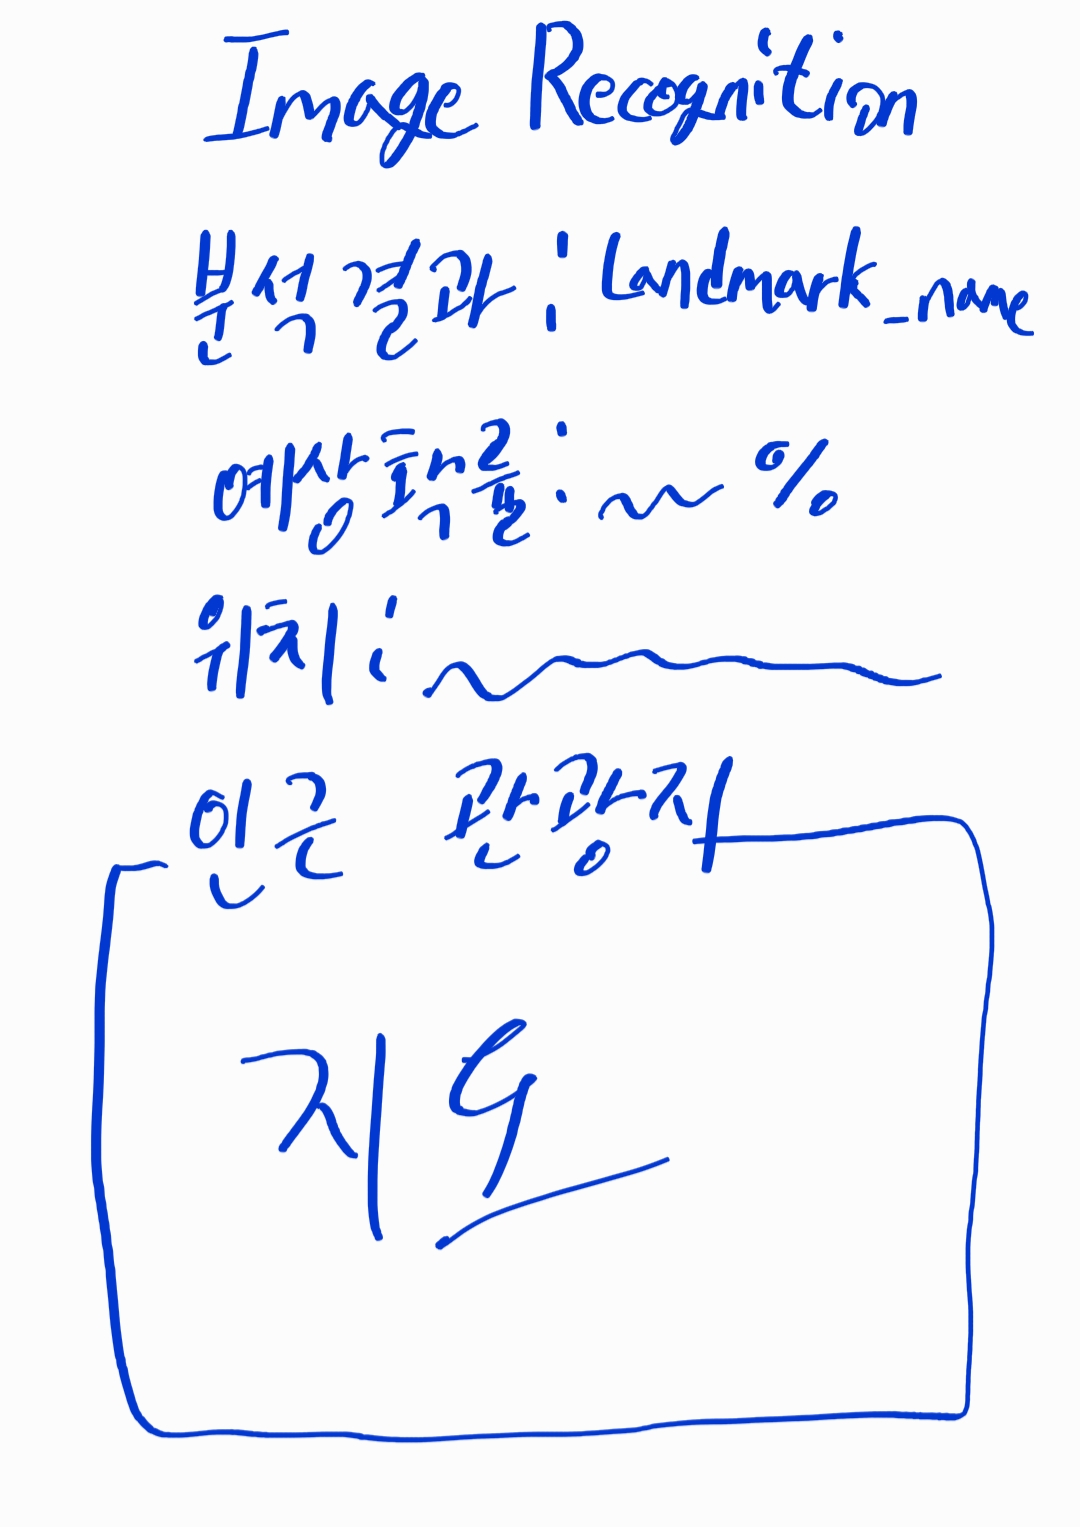 Image Recognition
분석결과 : Landmark_name
예상확률 : %
위치 :
인근 관광지
지도